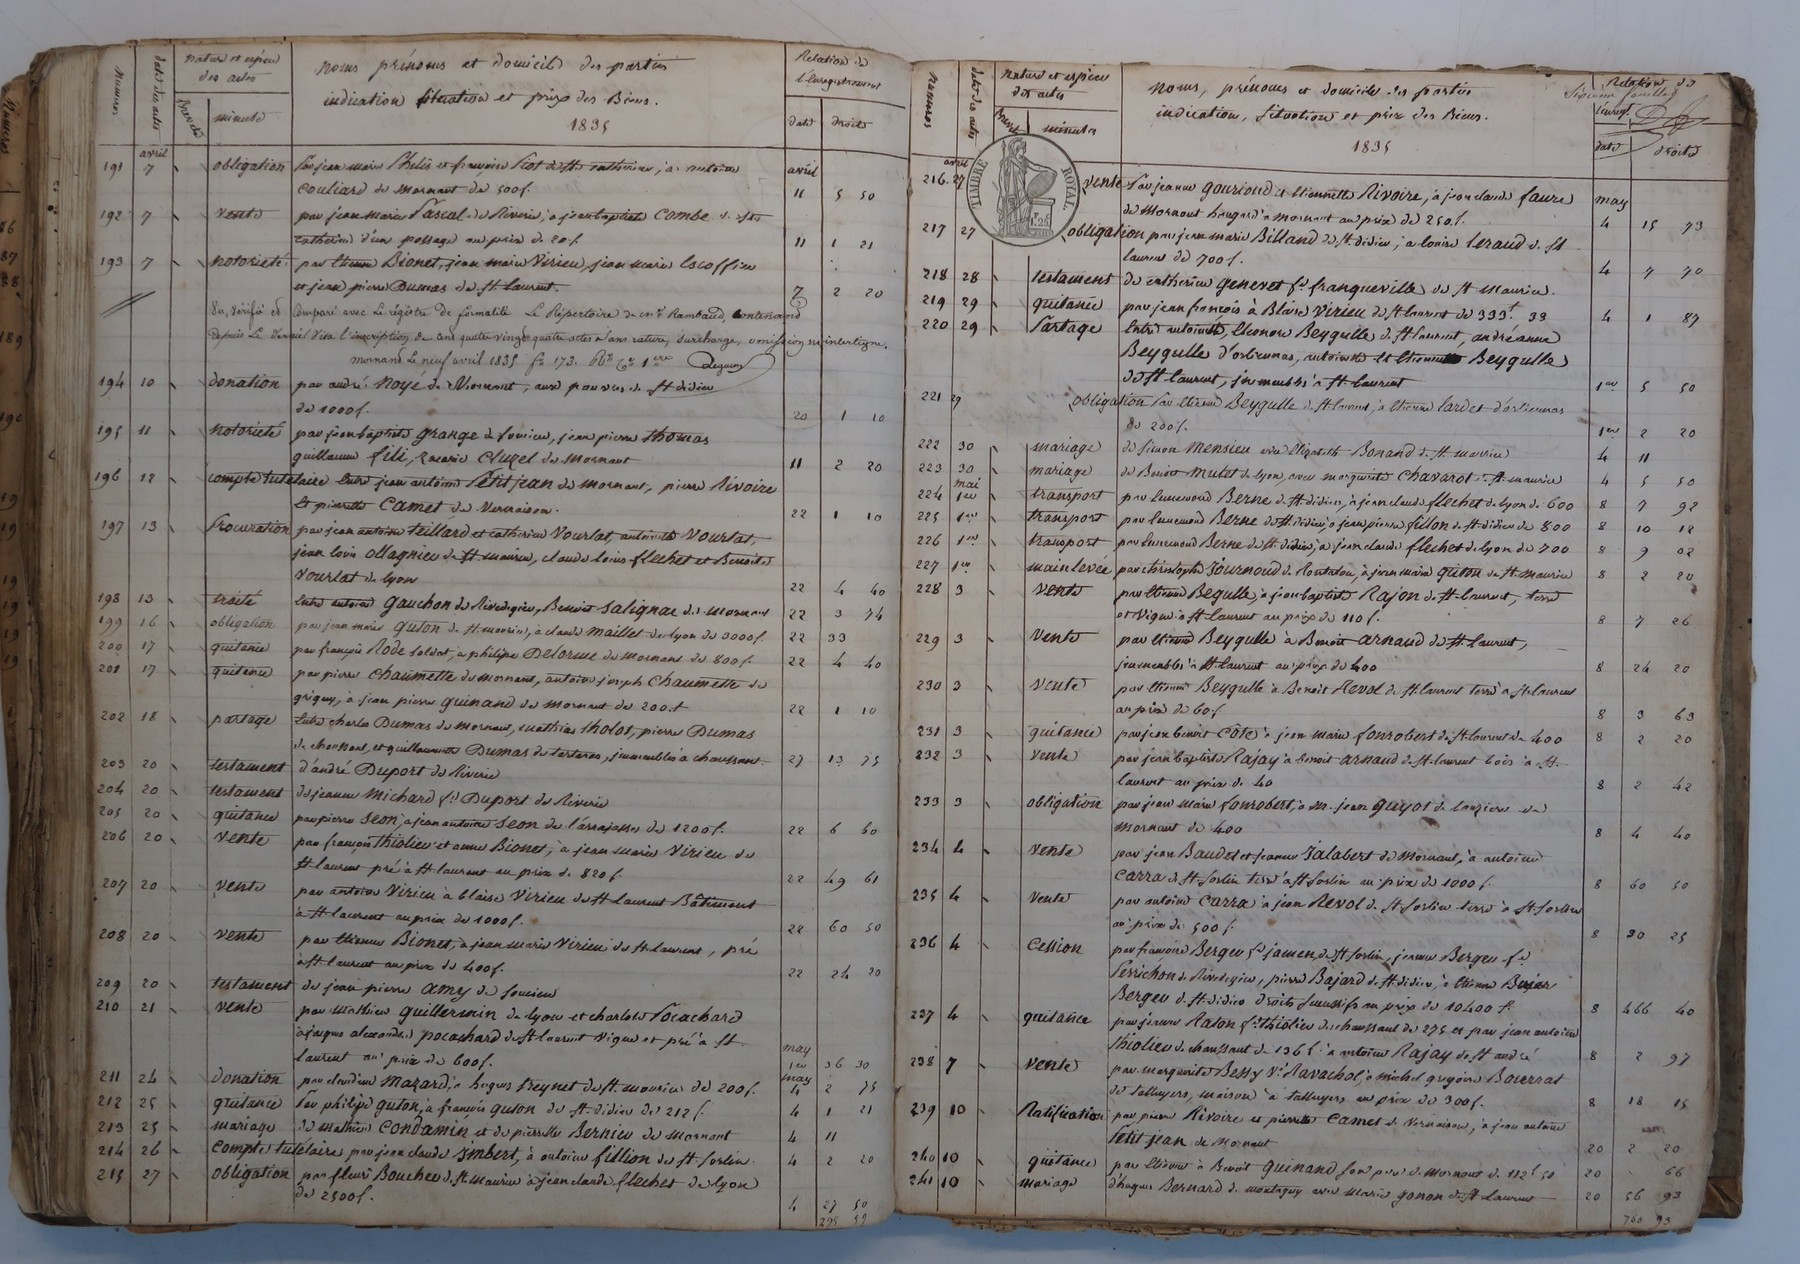 Numeros
date des actes
nature et espèce des actes
brevets
minutes
noms prénoms et domicile des parties
indication situation et prix des Biens.
1835
Relation de l'enregistrement
date droits
avril
191 7 obligation par jean marie et françoise de St. catherine, à antoine avril
Couliard de Mornant de 500f. 11 5 50
192 7 vente par jean marie Pascal de Riverie, à jean baptiste Combe de Ste
catherine d'un passage au prix de 20f. 11 1 21
193 7 notorieté par Etienne Bionet, jean marie Virieu, jean marie Escoffier
et jean pierre Dumas de St. Laurent. 7 2 20
Vu, vérifié et comparé avec le régistre de formalité Le Répertoire de me Rambaud, contenant
depuis Le dernier Visa l'inscription de cent quatre vingt quatre actes sans rature, surcharge, omission ni interligne.
mornant Le neuf avril 1835 fo 173. Ro Ce 1ere
194 10 donation par andré Noyé de Mornant, aux pauvres de St didier
de 1000f. 20 1 10
195 11 notorieté par jean baptiste Grange de Soucieu, jean pierre Thomas
guillaume fili, Cluzel de Mornant 11 2 20
196 12 compte tutélaire Entre jean antoine Petit jean de Mornant, pierre Rivoire
Et pierrette Camet de Vernaison. 22 1 10
197 13 Procuration par jean antoine teillard et catherine Vourlat, antoinette Vourlat,
jean louis Ollagnier de St maurice, claude louis flechet et Benoite
Vourlat de lyon 22 4 40
198 13 traité Entre antoine Gauchon de Rivedegier, Benoit Salignac de Mornant 22 3 74
199 16 obligation par jean marie Guton de St maurice, à claude Maillet de lyon de 3000f. 22 33
200 17 quitance par françois Rode soldat, à philipe Delorme de Mornant de 800f. 22 4 40
201 17 quitance par pierre Chaumette de Mornant, antoine joseph Chaumette de
grigny, à jean pierre Guinand de Mornant de 200.f 22 1 10
202 18 partage Entre charles Dumas de Mornant, mathias tholot, pierre Dumas
de chaussant, et guillaumette Dumas de tartaras, immeubles à chaussant. 27 13 75
203 20 testament d'andré Duport de Riverie
204 20 testament de jeanne Michard fe Duport de Riverie
205 20 quitance par pierre Seon, à jean antoine Seon de l'arrajasse de 1200f. 22 6 60
206 20 vente par françois Thiolier et anne Bionet, à jean marie Virieu de
St laurent pré à St laurent au prix de 820f. 22 49 61
207 20 vente par antoine Virieu à blaise Virieu de St laurent Bâtiment
à St laurent au prix de 1000f. 22 60 50
208 20 vente par Etienne Bionet, à jean marie Virieu de St laurent, pré
à St laurent au prix de 400f. 22 24 20
209 20 testament de jean pierre Amy de Soucieu
210 21 vente par Mathieu Guillermin de lyon et charlotte Pocachard
à jaques alexandre Pocachard de St laurent Vigne et pré à St may
laurent au prix de 600f. 1er 36 30
211 24 donation par claudine Mazard, à hugues Freynet de St maurice de 200f. may 4 2 75
212 25 quitance Par philipe Guton, à françois Guton de St didier de 212f. 4 1 21
213 25 mariage de mathieu Condamin et de pierrette Bernier de Mornant 4 11
214 26 compte tutélaire, par jean claude Simbert, à antoine fillion de St sorlin 4 2 20
215 27 obligation par fleuri Boucher de St maurice à jean claude flechet de lyon
de 2500f. 4 27 50
295 59
Numeros
date des actes
nature et espèce des actes
Brevet
minutes
noms, prénoms et domicile des parties
indication, situation et prix des Biens.
1835
Relation de l'enregt.
date droits
TIMBRE ROYAL
avril
216. 27 vente Par jeanne Gouriond et Etiennette Rivoire, à jean claude faure may
de Mornant hangard à mornant au prix de 250f. 4 15 73
217 27 obligation par jean marie Billand de St. didier, à louise Leraud de St
laurent de 700f. 4 7 70
218 28 testament de catherine Genevet fe franqueville de St maurice.
219 29 quitance par jean françois à Blaise Virieu de St laurent de 333f. 33 4 1 87
220 29 Partage Entre antoinette, Eleonore Beygulle de St laurent, andréanne
Beygulle d'orliennas, antoinette et Etiennette Beygulle
de St laurent, immeubles à St laurent 1er 5 50
221 29 obligation Par Etienne Beygulle de St laurent, à Etienne lardet d'orliennas
de 200f. 1er 2 20
222 30 mariage de simon Mensieu avec Elizabeth Bonand de St maurice 4 11
223 30 mariage de Benoit Mulet de lyon, avec marguerite Chavarot de St maurice 4 5 50
mai
224 1er transport par Berne de St didier, à jean claude flechet de lyon de 600 8 7 92
225 1er transport par Berne de St didier, à jean pierre fillon de St didier de 800 8 10 12
226 1er transport par Berne de St didier, à jean claude flechet de lyon de 700 8 9 02
227 1er mainlevée par christophe Journoud de Rontalon, à jean marie Guton de St maurice 8 2 20
228 3 vente par Etienne Begulle, à jean baptiste Rajon de St laurent, terre
et vigne à St laurent au prix de 110f. 8 7 26
229 3 vente par Etienne Beygulle à Benoit Arnaud de St laurent,
immeubles à St laurent au prix de 400 8 24 20
230 3 vente par Etienne Beygulle à Benoit Revol de St laurent terre à St laurent
au prix de 60f. 8 3 63
231 3 quitance par jean benoit Côte à jean marie fonrobert de St laurent de 400 8 2 20
232 3 vente par jean baptiste Rajay à benoit Arnaud de St laurent bois à St.
laurent au prix de 40 8 2 42
233 3 obligation par jean marie fonrobert, à m. jean Guyot de lanziere de
Mornant de 400 8 4 40
234 4 vente par jean Baudet et jeanne Jalabert de Mornant, à antoine
Carra de St Sorlin terre à St sorlin au prix de 1000f. 8 60 50
235 4 vente par antoine Carra à jean Revol de St sorlin terre à St sorlin
au prix de 500f. 8 30 25
236 4 Cession par françoise Berger fe jamen, de St sorlin, jeanne Berger fe
Perrichon de Rivedegier, pierre Bajard de St didier, à Etienne
Berger de St didier droits successifs au prix de 10400f. 8 466 40
237 4 quitance par jeanne Raton fe Thiolier de chaussant de 275 et par jean antoine
Thiolier de chaussant de 1365. à antoine Rajay de St andré 8 2 97
238 7 vente par marguerite Bessy Ve Ravachol, à michel gregoire Bacerrat
de talluyers, maison à talluyers au prix de 300f. 8 18 15
239 10 Ratification par pierre Rivoire et pierrette Camet de Vernaison, à jean antoine
Petit jean de Mornant 20 2 20
240 10 quitance par Etienne à Benoit Guinand son père de Mornant de 112f 50 20 66
241 10 mariage d'hugues Bernard de montagny avec marie Gonon de St Laurent 20 56 93
760 93